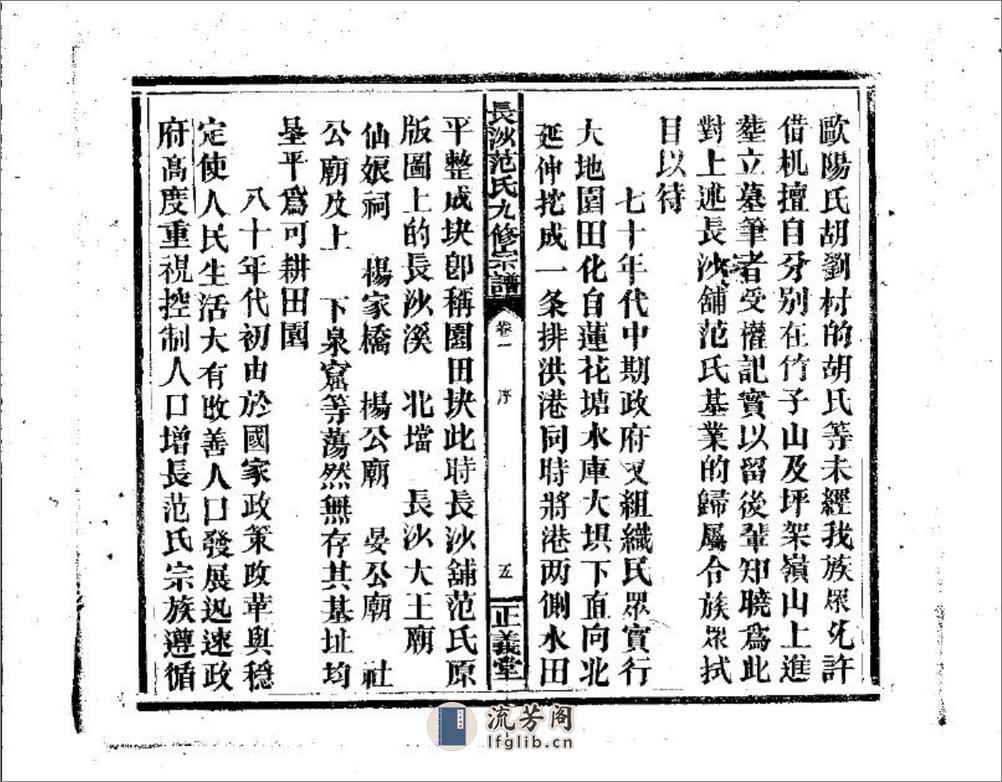 歐陽氏胡劉村的胡氏等未經我族眾允許
借机擅自分別在竹子山及坪架嶺山上進
塟立墓筆者受權記實以留後輩知曉爲此
對上述長沙舖范氏基業的歸屬合族眾拭
目以待
七十年代中期政府又組織民眾實行
大地園田化自蓮花塘水庫大垻下直向北
延伸挖成一条排洪港同時將港两側水田
長沙范氏九修宗譜
卷一
序
五
正義堂
平整成块卽稱園田块此時長沙舖范氏原
版圖上的長沙溪 北壋 長沙大王廟
仙娘祠 楊家橋 楊公廟 晏公廟 社
公廟及上 下泉窟等蕩然無存其基址均
垦平爲可耕田園
八十年代初由於國家政策政革與穏
定使人民生活大有改善人口發展迅速政
府高度重視控制人口增長范氏宗族遵循
流芳阁
lfglib.cn